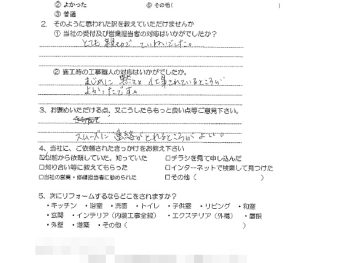 ② よかった ⑤ その他(
③ 普通
2. そのように思われた訳を教えていただけませんか
① 当社の受付及び営業担当者の対応はいかがでしたか?
とても親切でていねいでした。
② 施工時の工事職人の対応はいかがでしたか。
まじめに黙々と仕事されているところが
よかったです。
3. お褒めいただける点、又こうしたらもっと良い点等ご意見下さい。
スムーズに連絡がとれるところがよい。
4. 当社に、ご依頼された言っかけをお教え下さい
☑以前から依頼していた、知っていた □チラシを見て申し込んだ
□知り合い等に教えてもらった □インターネットで検索して見つけた
□当社の営業・修繕担当者に勧められた □その他(
5. 次にリフォームするならどこをされますか?
・キッチン ・浴室 ・洗面 ・トイレ ・子供室 ・リビング ・和室
・玄関 ・インテリア(内装工事全般) ・エクステリア(外構) ・屋根
・外壁 ・増築 ・その他(